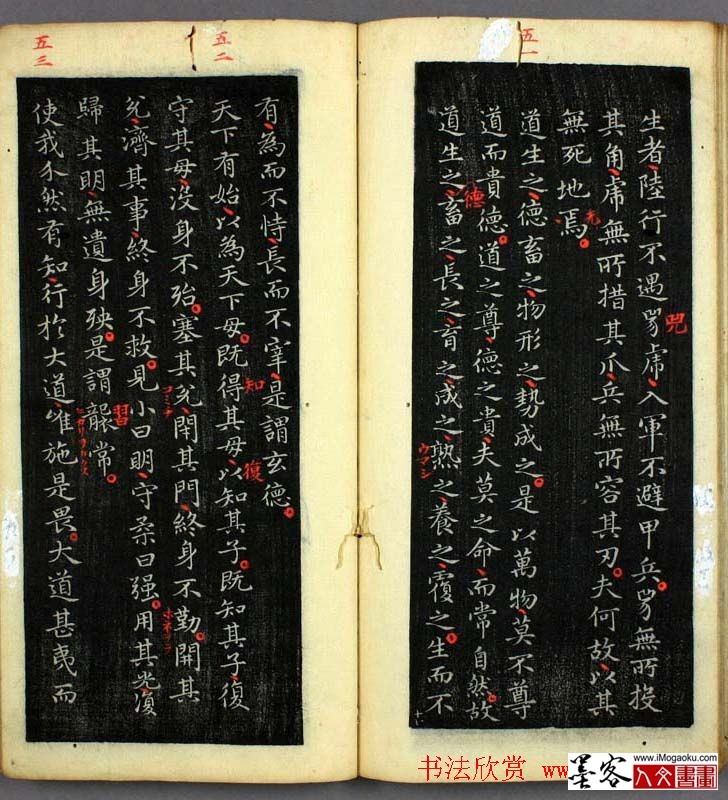 五一
生者陸行不遇兕虎入軍不避甲兵兕無所投
兕
其角虎無所措其爪兵無所容其刃夫何故以其
無死地焉
道生之德畜之物形之勢成之是以萬物莫不尊
道而貴德道之尊德之貴夫莫之命而常自然故
德
道生之畜之長之育之成之熟之養之覆之生而不
ウマシ
五二
有為而不恃長而不宰是謂玄德
天下有始以為天下母既得其母以知其子既知其子復
知
復
守其母没身不殆塞其兌閉其門終身不勤開其
兌濟其事終身不救見小曰明守柔曰强用其光復
歸其明無遺身殃是謂襲常
習
五三
使我介然有知行於大道唯施是畏大道甚夷而
书法欣赏 www
墨客 人文書畫
www.iMogaoku.com